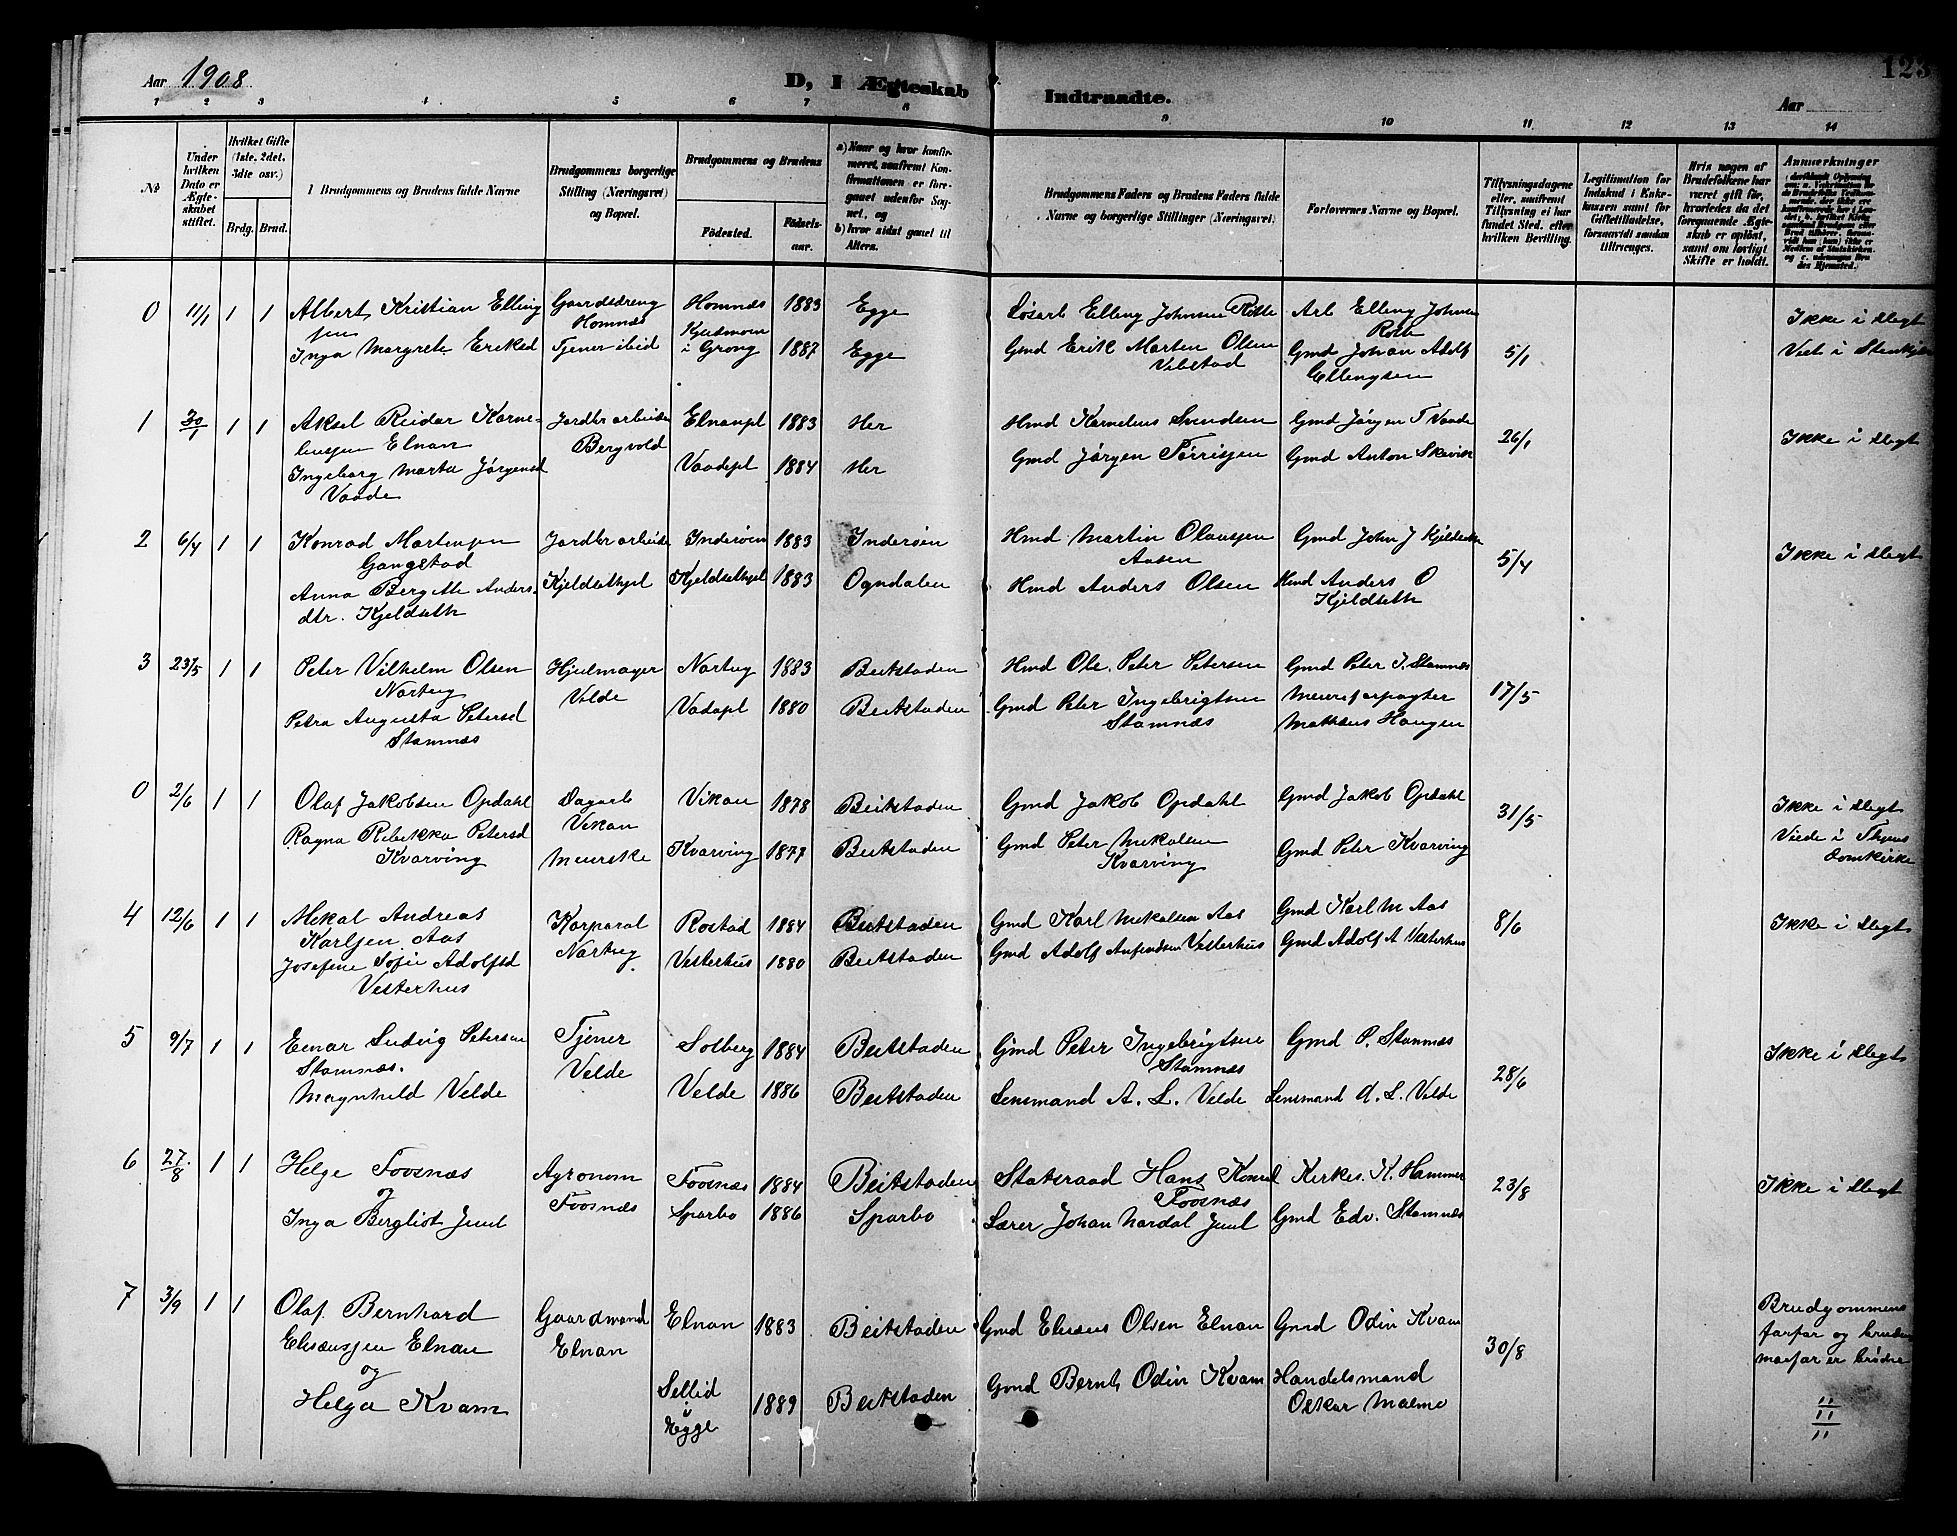 Aar 1908
D, I Ægteskab Indtraadte.
123
Aar
1 2 3 4 5 6 7 8 9 10 11 12 13 14
№
Under hvilken Dato er Ægteskabet stiftet.
Hvilket Gifte (1ste, 2det, 3die osv.)
Brdg. Brud.
Brudgommens og Brudens fulde Navne
Brudgommens borgerlige Stilling (Næringsvei) og Bopæl.
Brudgommens og Brudens
Födested. Födselsaar.
a) Naar og hvor konfirmeret, saafremt Konfirmationen er foregaaet udenfor Sognet, og
b) hvor sidst gaaet til Alters.
Brudgommens Faders og Brudens Faders fulde Navne og borgerlige Stillinger (Næringsvei)
Forlovernes Navne og Bopæl.
Tillysningsdagene eller, saafremt Tillysning ei har fundet Sted, efter hvilken Bevilling.
Legitimation for Indskud i Enkekassen samt for Giftetilladelse, forsaavidt saadan tiltrænges.
Hvis nogen af Brudefolkene har været gift før, hvorledes da det foregaaende Ægteskab er opløst, samt om lovligt Skifte er holdt.
Anmærkninger
0 11/1 1 1 Albert Kristian Ellingsen Gaardsdreng Homnæs Homnæs 1883 Egge Løsarb Elling Johnsen Rötte Arb Elling Johnsen Rotte 5/1 Ikke i slegt
Inga Margrete Eriksd Tjener ibid i Grong 1887 Egge Gmd Erik Morten Olsen Vibstad Gmd Johan Adolf Ellengsen
1 30/1 1 1 Aksel Reidar Korneliussen Elnan Jordbrarbeider Bergvold Elnanpl 1883 Her Hmd Kornelius Svendsen Gmd Jørgen T Vaade 26/1 Ikke i slegt
Ingeborg Marta Jørgensd Vaade Vaadepl 1884 Her Gmd Jørgen Tørrisen Gmd Anton Skevik
2 6/4 1 1 Konrad Martensen Gangstad Jordbrarbeider Kjeldsethpl Inderøen 1883 Inderøen Hmd Martin Olaussen Aasen Gmd John J Kjeldseth 5/4 Ikke i slegt
Anna Bergitte Andersdtr. Kjeldseth Kjeldsethpl 1883 Ogndalen Hmd Anders Olsen Hmd Anders O Kjeldseth
3 23/5 1 1 Peter Vilhelm Olsen Nortug Hjulmager Velde Nortug 1883 Beitstaden Hmd Ole Peter Petersen Gmd Peter I. Stamnæs 17/5
Petra Augusta Petersd Stamnæs Vadapl 1880 Beitstaden Gmd Peter Ingebrigtsen Stamnæs Meierforpagter Matheus Haugen
0 2/6 1 1 Olaf Jakobsen Opdahl Dagarb Vikan Vikan 1878 Beitstaden Gmd Jakob Opdahl Gmd Jakob Opdahl 31/5 Ikke i slegt
Ragna Rebekka Petersd Kvarving Meierske Kvarving 1877 Beitstaden Gmd Peter Mekalsen Kvarving Gmd Peter Kvarving Viede i Thjems Domkirke
4 12/6 1 1 Mekal Andreas Karlsen Aas Korporal Nortug Rostad 1884 Beitstaden Gmd Karl Mekalsen Aas Gmd Karl M Aas 8/6 Ikke i slegt
Josefine Sofie Adolfsd Vesterhus Vesterhus 1880 Beitstaden Gmd Adolf Anfindsen Vesterhus Gmd Adolf A Vesterhus
5 9/7 1 1 Einar Ludvig Petersen Stamnæs. Tjener Velde Solberg 1884 Beitstaden Gmd Peter Ingebrigtsen Stamnæs Gmd P. Stamnæs 28/6 Ikke i slegt
Magnhild Velde Velde 1886 Beitstaden Lensmand A. L. Velde Lensmand A. L. Velde
6 27/8 1 1 Helge Foosnæs Agronom Foosnæs Foosnæs 1884 Beitstaden Statsraad Hans Konrad Foosnæs Kirkes. K. Hammer 23/8 Ikke i slegt
og
Inga Bergliot Juul Sparbo 1886 Sparbo Lærer Johan Nardal Juul Gmd Edv. Stamnæs
7 3/9 1 1 Olaf Bernhard Elisæussen Elnan Gaardmand Elnan Elnan 1883 Beitstaden Gmd Elisæus Olsen Elnan Gmd Odin Kvam 30/8 Brudgommens farfar og brudens morfar er brødre
og
Helga Kvam Sellid i Egge 1889 Beitstaden Gmd Bernt Odin Kvam Handelsmand Oskar Malmo
11
11
11